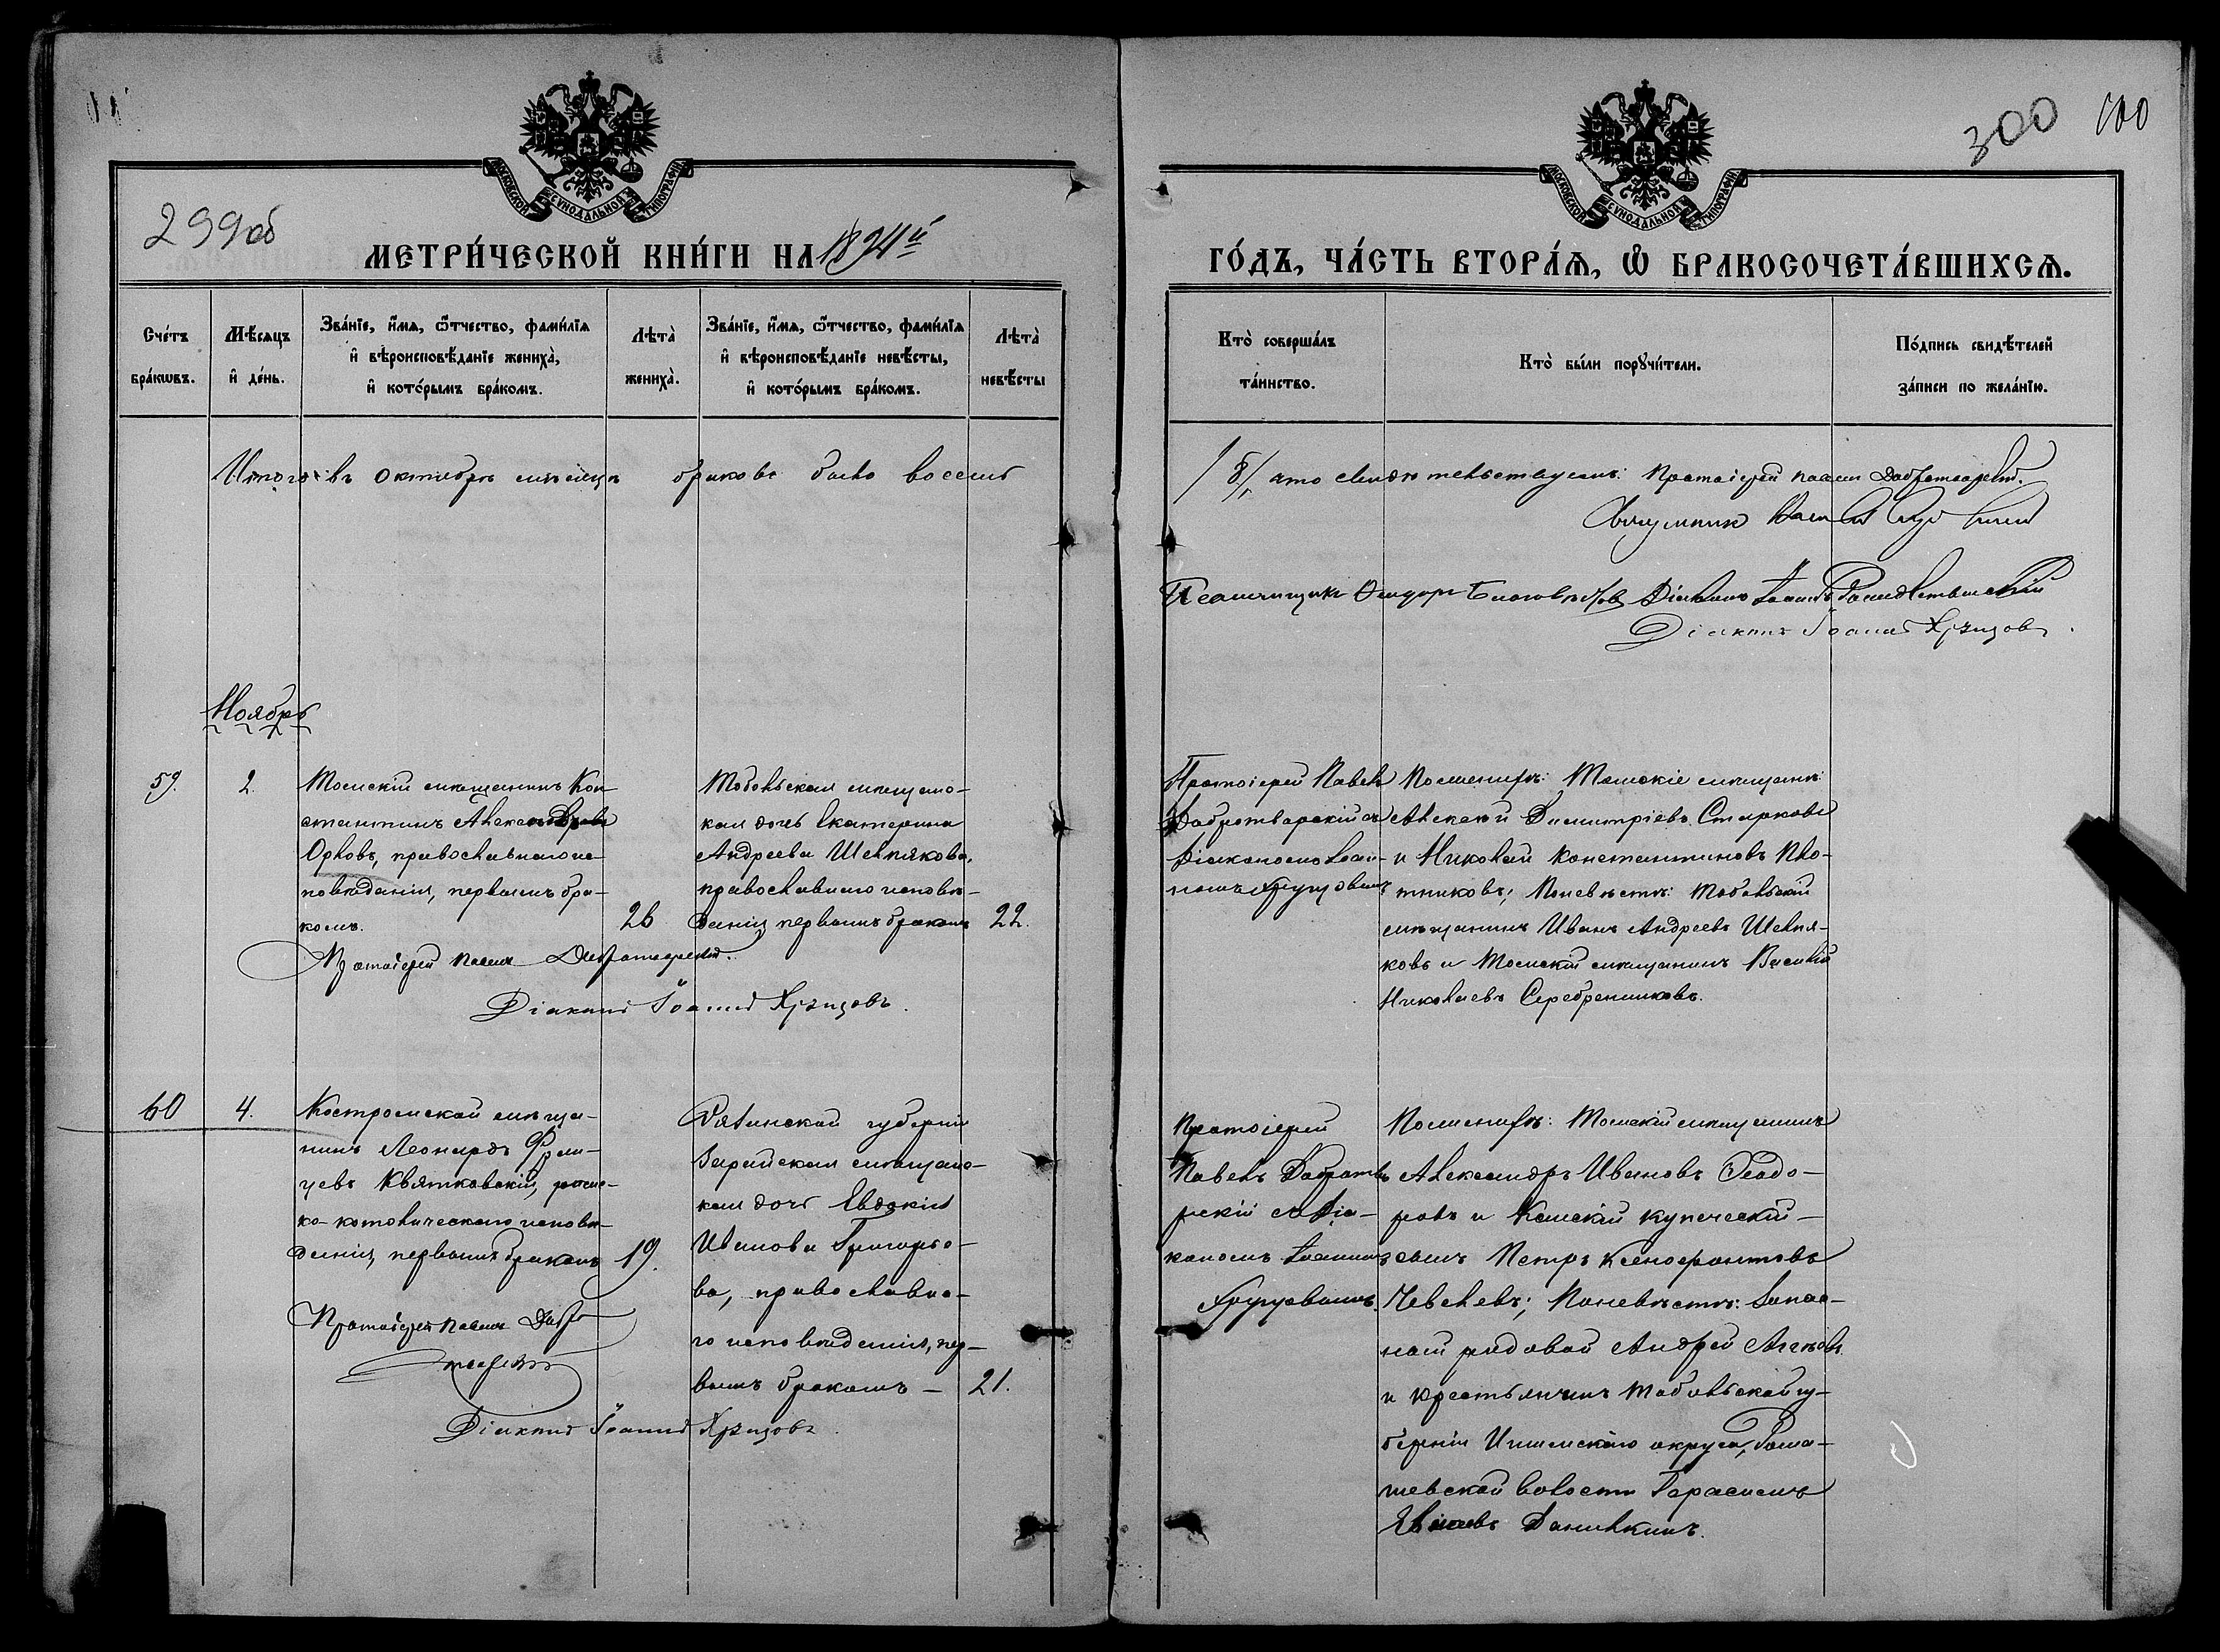 300 100
299об
МОСКОВСКОЙ СѴНОДАЛЬНОЙ ТИПОГРАФІИ
МОСКОВСКОЙ СѴНОДАЛЬНОЙ ТИПОГРАФІИ
МЕТРИ́ЧЕСКОЙ КНИ́ГИ НА 1894й
ГО́ДЪ, ЧА́СТЬ ВТОРА́Ѧ, Ѡ҆ БРАКОСОЧЕТА́ВШИХСѦ.
Сче́тъ
бра́кѡвъ.
Мѣ́сяцъ
и҆ де́нь.
Зва́нїе, и҆́мѧ, ѻ҆́тчество, фами́лїѧ
и҆ вѣроисповѣ́данїе жениха̀,
и҆ кото́рымъ бра́комъ.
Лѣ́та
жениха̀.
Зва́нїе, и҆́мѧ, ѻ҆́тчество, фами́лїѧ
и҆ вѣроисповѣ́данїе невѣ́сты,
и҆ кото́рымъ бра́комъ.
Лѣ́та
невѣ́сты
Кто̀ соверша́лъ
та́инство.
Кто̀ бы́ли порꙋчи́тели.
По́дпись свидѣ́телей
за́писи по жела́нїю.
Итого въ Октябрѣ мѣсяцѣ браковъ было восемь
/8/, что свидѣтельствуемъ: Протоіерей Павелъ Добротворскій.
Псаломщикъ Ѳеодоръ Діаконъ Іоаннъ Рождественскій
Діаконъ Іоаннъ Хрущовъ.
Ноябрь
59.
2.
Томскій мѣщанинъ Кон-
стантинъ Александровъ
Орловъ, православнаго ис-
повѣданія, первымъ бра-
комъ.
26
Протоіерей Павелъ Добротворскій.
Діаконъ Іоаннъ Хрущовъ.
Тобольская мѣщанс-
кая дочь Екатерина
Андреева Шелпякова,
православнаго исповѣ-
данія, первымъ бракомъ
22.
Протоіерей Павелъ
Добротворскій съ
Діакономъ Іоан-
номъ Хрущовымъ
По женихѣ: Томскіе мѣщане:
Алексѣй Димитріевъ Старковъ
и Николай Константиновъ Пло-
тниковъ; По невѣстѣ: Тобольскій
мѣщанинъ Иванъ Андреевъ Шелпя-
ковъ и Томскій мѣщанинъ Василій
Николаевъ Серебрениковъ.
60
4.
Костромской мѣща-
нинъ Леонардъ Фран-
цевъ Квятковскій, римс-
ко-католическаго исповѣ-
данія, первымъ бракомъ
19.
Протоіерей Павелъ Добро-
творскій
Діаконъ Іоаннъ Хрущовъ.
Рязанской губерніи
Зарайская мѣщанс-
кая дочь Евдокія
Иванова Григорье-
ва, православна-
го исповѣданія, пер-
вымъ бракомъ –
21.
Протоіерей
Павелъ Добротво-
рскій съ Діа-
кономъ Іоанномъ
Хрущовымъ.
По женихѣ: Томскій мѣщанинъ
Александръ Ивановъ Ѳеодо-
ровъ и Томскій купеческій –
сынъ Петръ Ксенофонтовъ
Чевелевъ; По невѣстѣ: Запас-
ный рядовой Андрей
и крестьянинъ Тобольской гу-
берніи Ишимскаго округа,
волости Герасимъ
Данилкинъ.